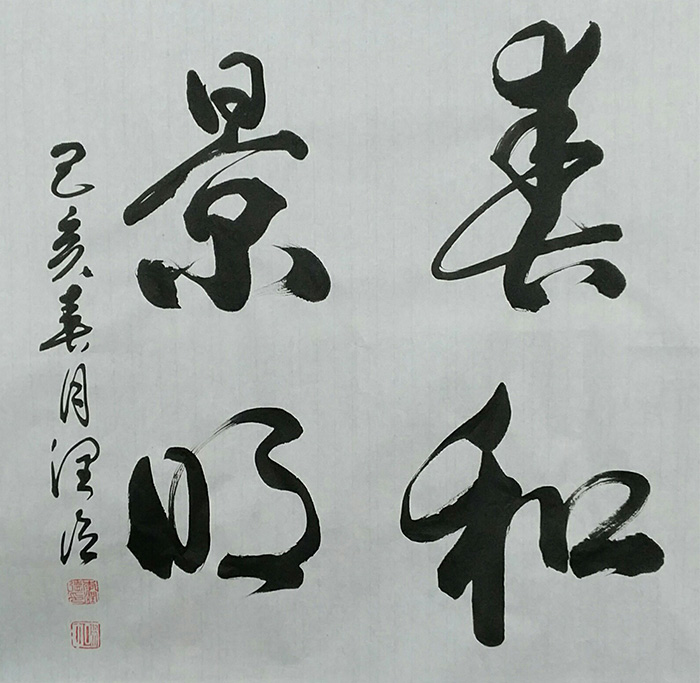 春和
景明
己亥春月理洽